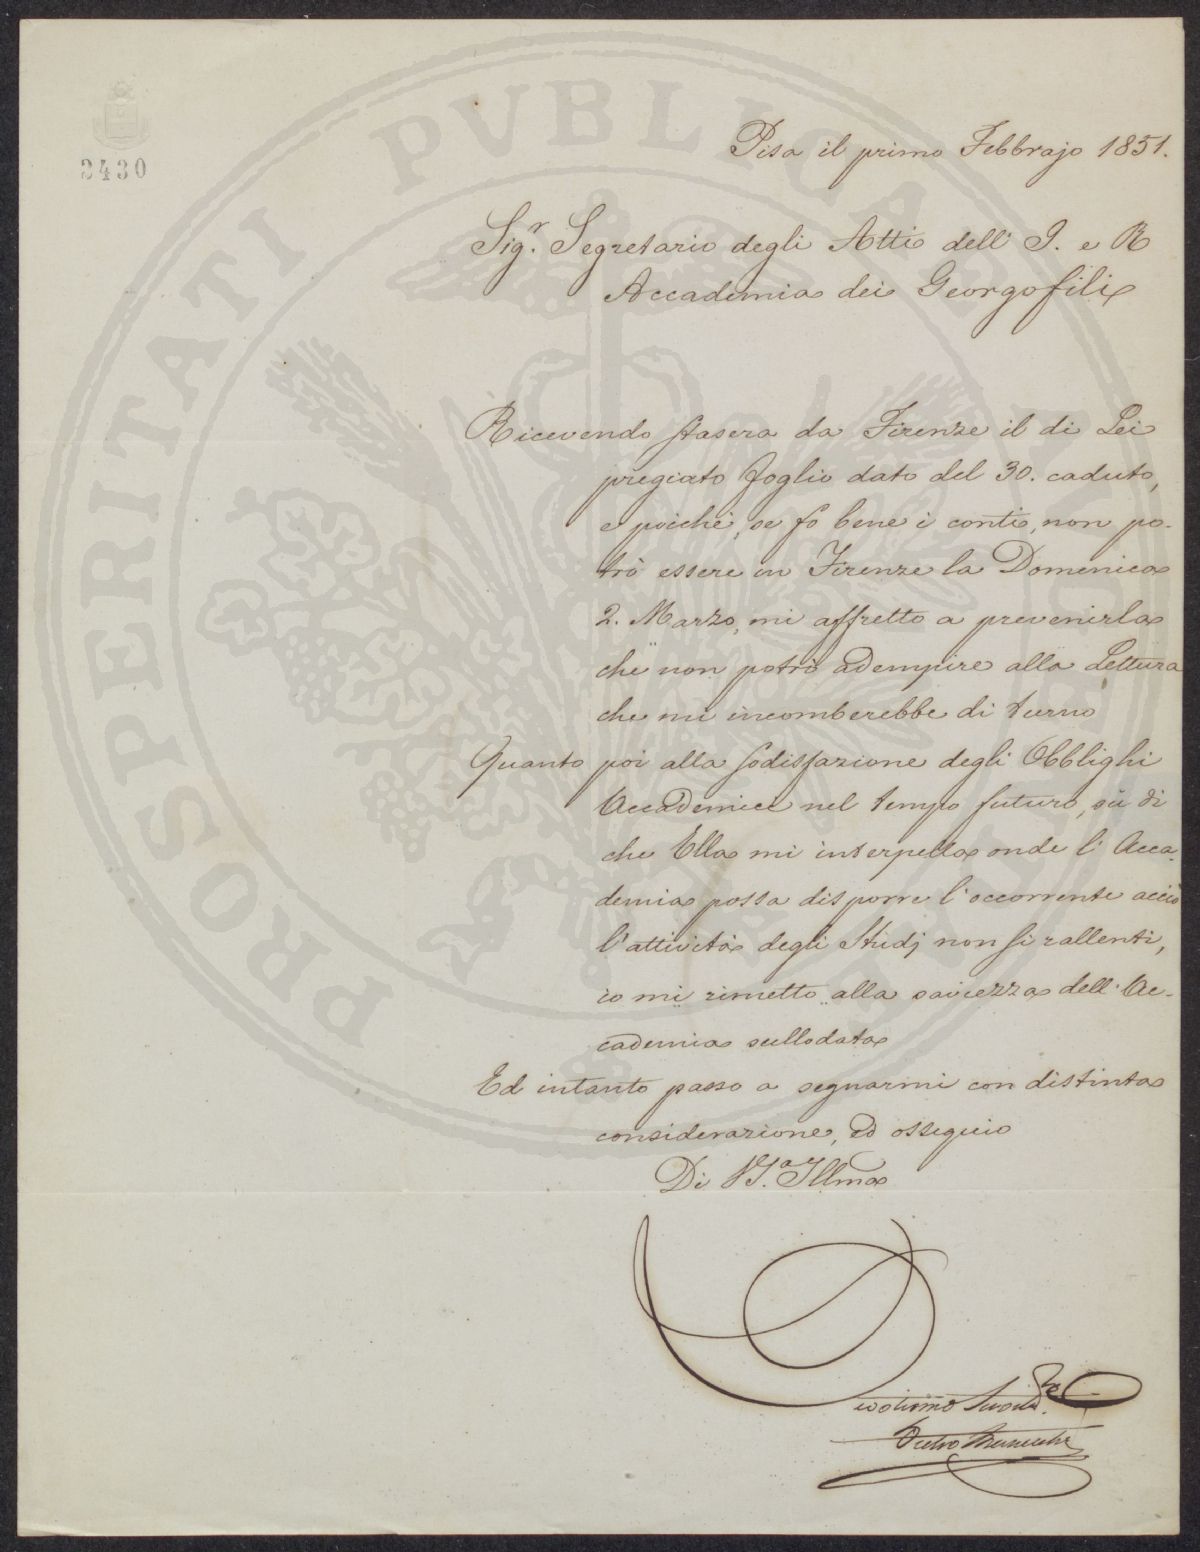 PROSPERITATI PVBLICAE AVGENDAE
2430
Pisa il primo Febbrajo 1851.
Sig.r Segretario degli Atti dell' I. e R
Accademia dei Georgofili
Ricevendo stasera da Firenze il di Lei
pregiato foglio dato del 30. caduto,
e poichè, se fo bene i conti, non po-
trò essere in Firenze la Domenica
2. Marzo, mi affretto a prevenirla
che non potrò adempire alla Lettura
che mi incomberebbe di turno
Quanto poi alla sodisfazione degli Obblighi
Accademici nel tempo futuro, sù di
che Ella mi interpella onde l' Acca-
demia possa disporre l'occorrente acciò
l'attività degli Studj non si rallenti,
io mi rimetto alla saviezza dell' Ac-
cademia sullodata
Ed intanto passo a segnarmi con distinta
considerazione, ed ossequio
Di V.S.a Illma
Pietro